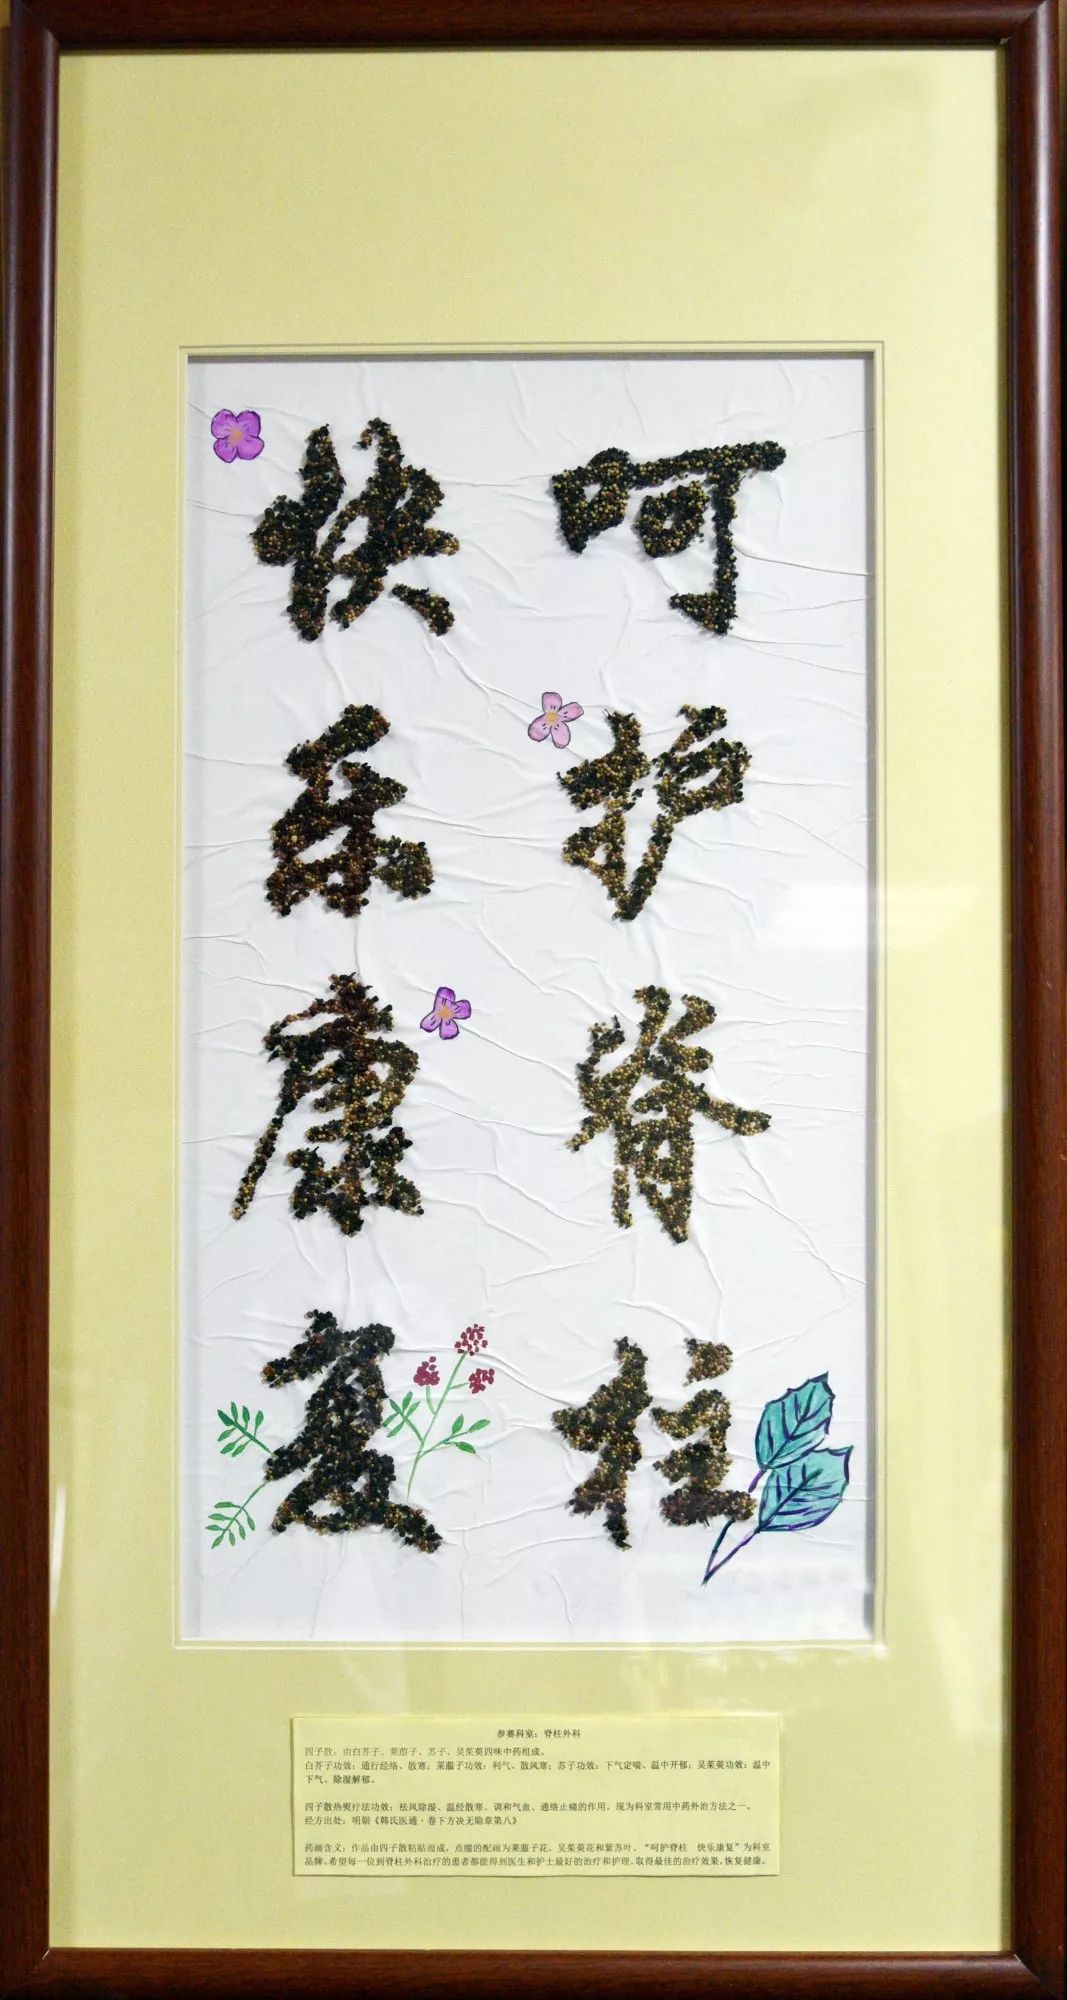 呵护脊柱
快乐康复
参赛科室：脊柱外科
四子散：由白芥子、莱菔子、苏子、吴茱萸四味中药组成。
白芥子功效：通行经络、散寒；莱菔子功效：利气、散风寒；苏子功效：下气定喘、温中开郁；吴茱萸功效：温中
下气、除湿解郁。
四子散热熨疗法功效：祛风除湿、温经散寒、调和气血、通络止痛的作用。现为科室常用中药外治方法之一。
经方出处：明朝《韩氏医通·卷下方诀无隐章第八》
药画含义：作品由四子散粘贴而成，点缀的配画为莱菔子花、吴茱萸花和紫苏叶。“呵护脊柱 快乐康复”为科室
品牌。希望每一位到脊柱外科治疗的患者都能得到医生和护士最好的治疗和护理，取得最佳的治疗效果，恢复健康。